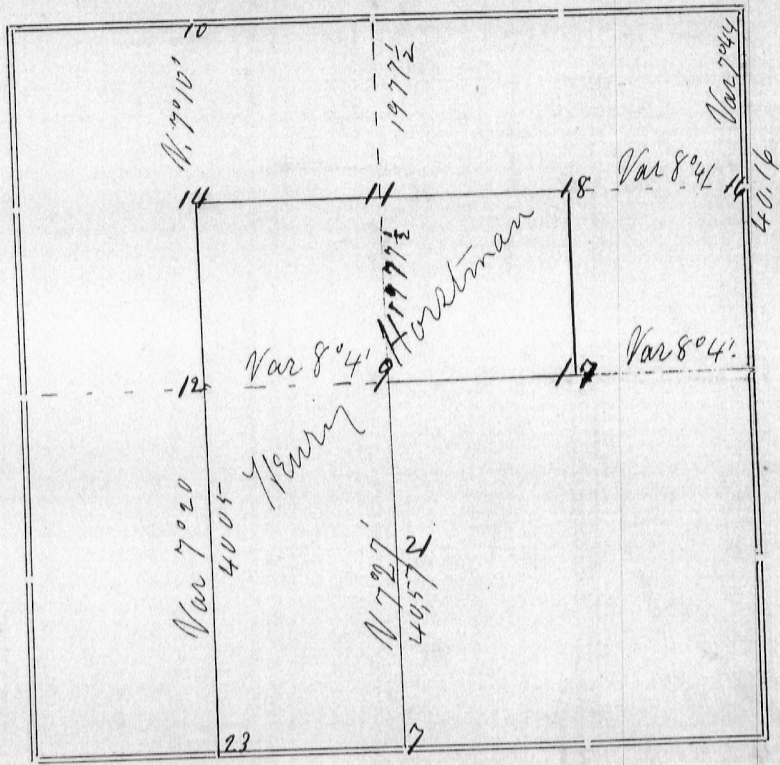 10
V. 7°10'
1977½
Var 7°44
14
11
18
Var 8°4'
16
40.16
1977½
Henry Horstman
12
Var 8°4'
9
17
Var 8°4'
Var 7°20
4005
V 7°27'
4057
21
23
7